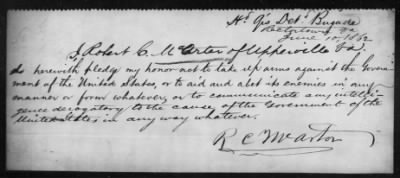 Hd. Qrs Det. Brigade
Rectortown Va
June 10 1862
I Robert C. McArtor of Upperville Va.
do herewith pledge my honor not to take up arms against the Govern-
ment of the United States, or to aid and abet its enemies in any
manner or form whatever, or to communicate any intelli-
gence derogatory to the cause of the Government of the
United States in any way whatever.
R C McArtor